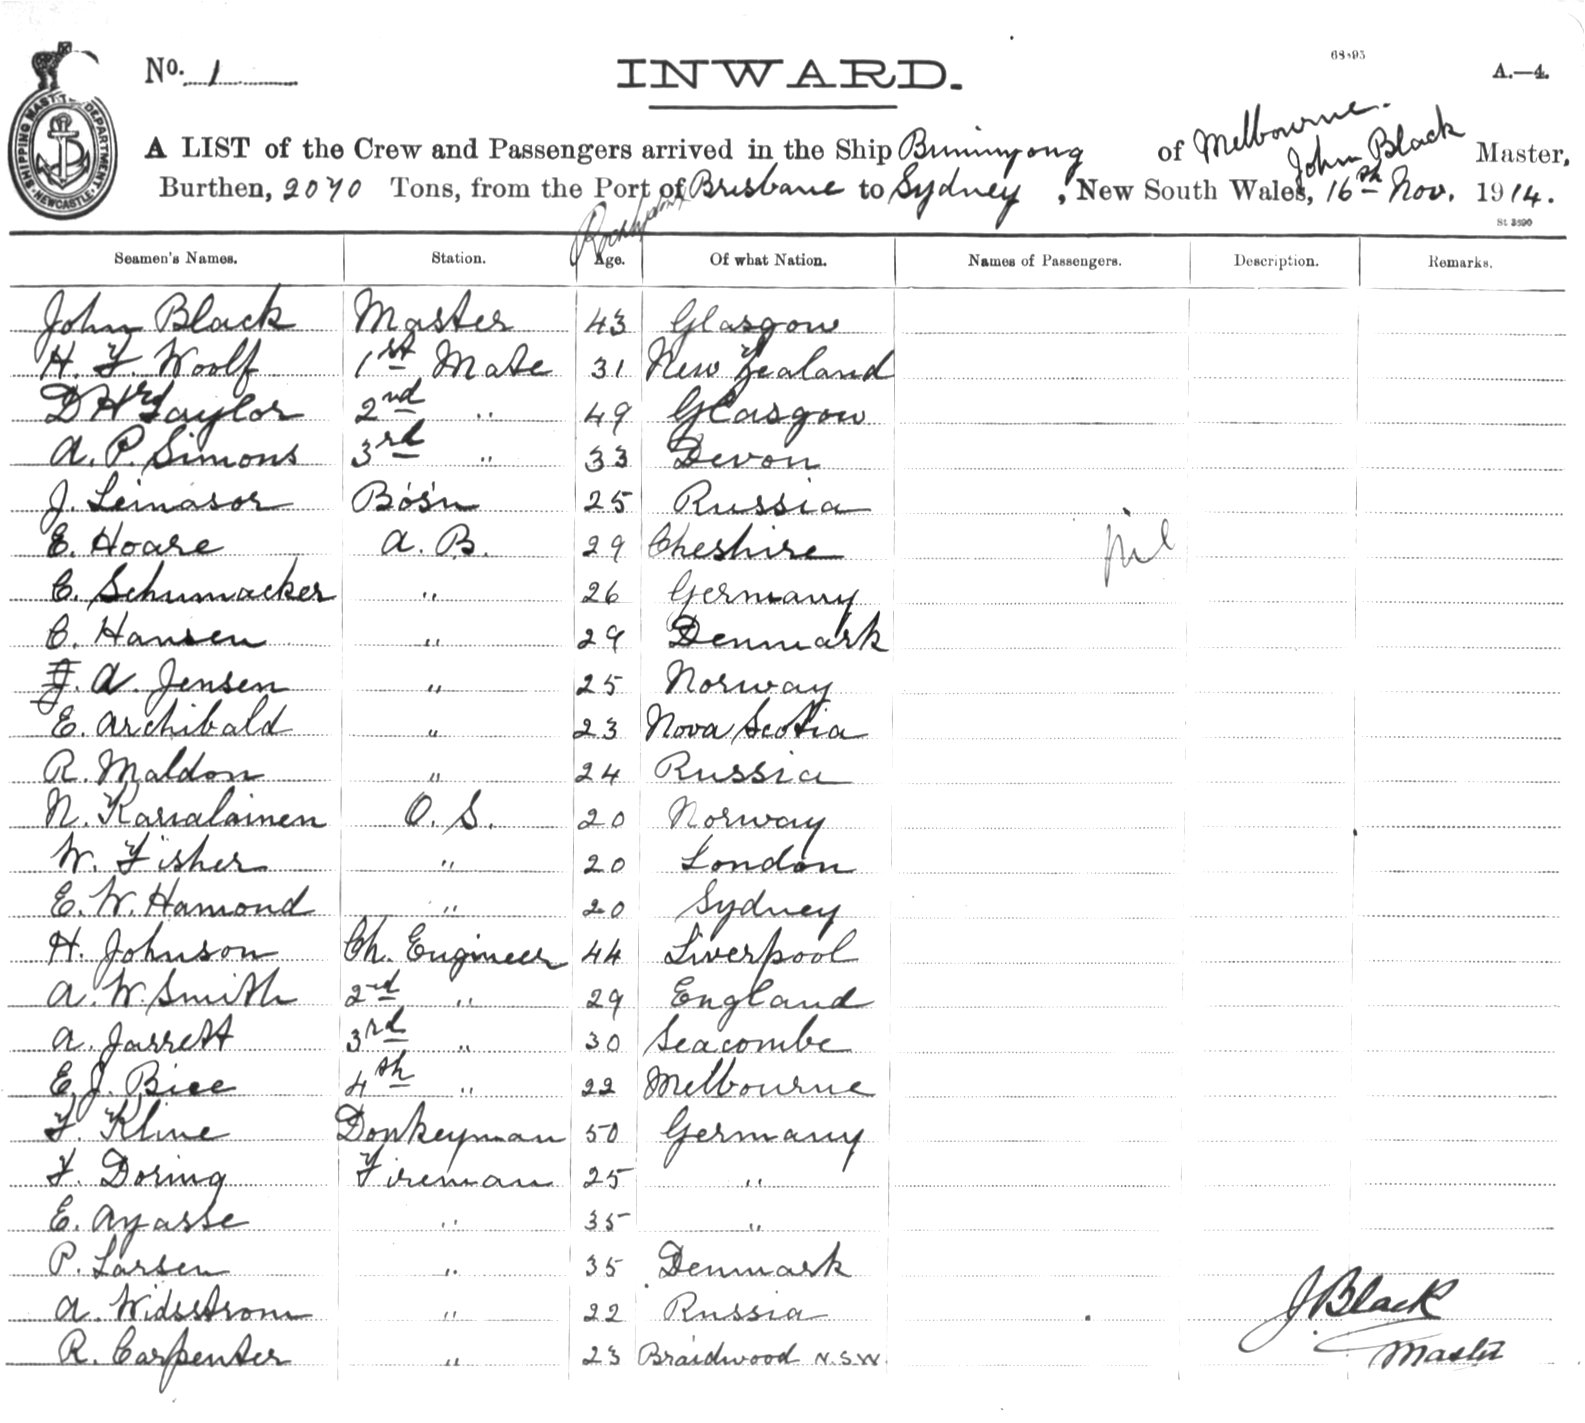 No. 1
INWARD.
68·95
A.—4.
SHIPPING MASTER'S DEPARTMENT. NEWCASTLE.
A LIST of the Crew and Passengers arrived in the Ship Buninyong of Melbourne. John Black Master,
Burthen, 2070 Tons, from the Port of Brisbane to Sydney, New South Wales, 16th Nov. 1914.
St 3590
Seamen's Names. Station. Age. Of what Nation. Names of Passengers. Description. Remarks.
John Black Master 43 Glasgow
H. F. Woolf 1st Mate 31 New Zealand
D Hry Taylor 2nd " 49 Glasgow
A. P. Simons 3rd " 33 Devon
J. Leinasor Bosn 25 Russia
E. Hoare A. B. 29 Cheshire nil
C. Schumacker " 26 Germany
C. Hansen " 29 Denmark
J. A. Jensen " 25 Norway
E. Archibald " 23 Nova Scotia
R. Maldon " 24 Russia
N. Karialainen O. S. 20 Norway
W. Fisher " 20 London
E. W. Hamond " 20 Sydney
H. Johnson Ch. Engineer 44 Liverpool
A. W. Smith 2nd " 29 England
A. Jarrett 3rd " 30 Seacombe
E. J. Bice 4th " 22 Melbourne
F. Kline Donkeyman 50 Germany
F. Doring Fireman 25 "
E. Ayasse " 35 "
P. Larsen " 35 Denmark
A. Widsstrom " 22 Russia J Black
R. Carpenter " 23 Braidwood N.S.W. Master